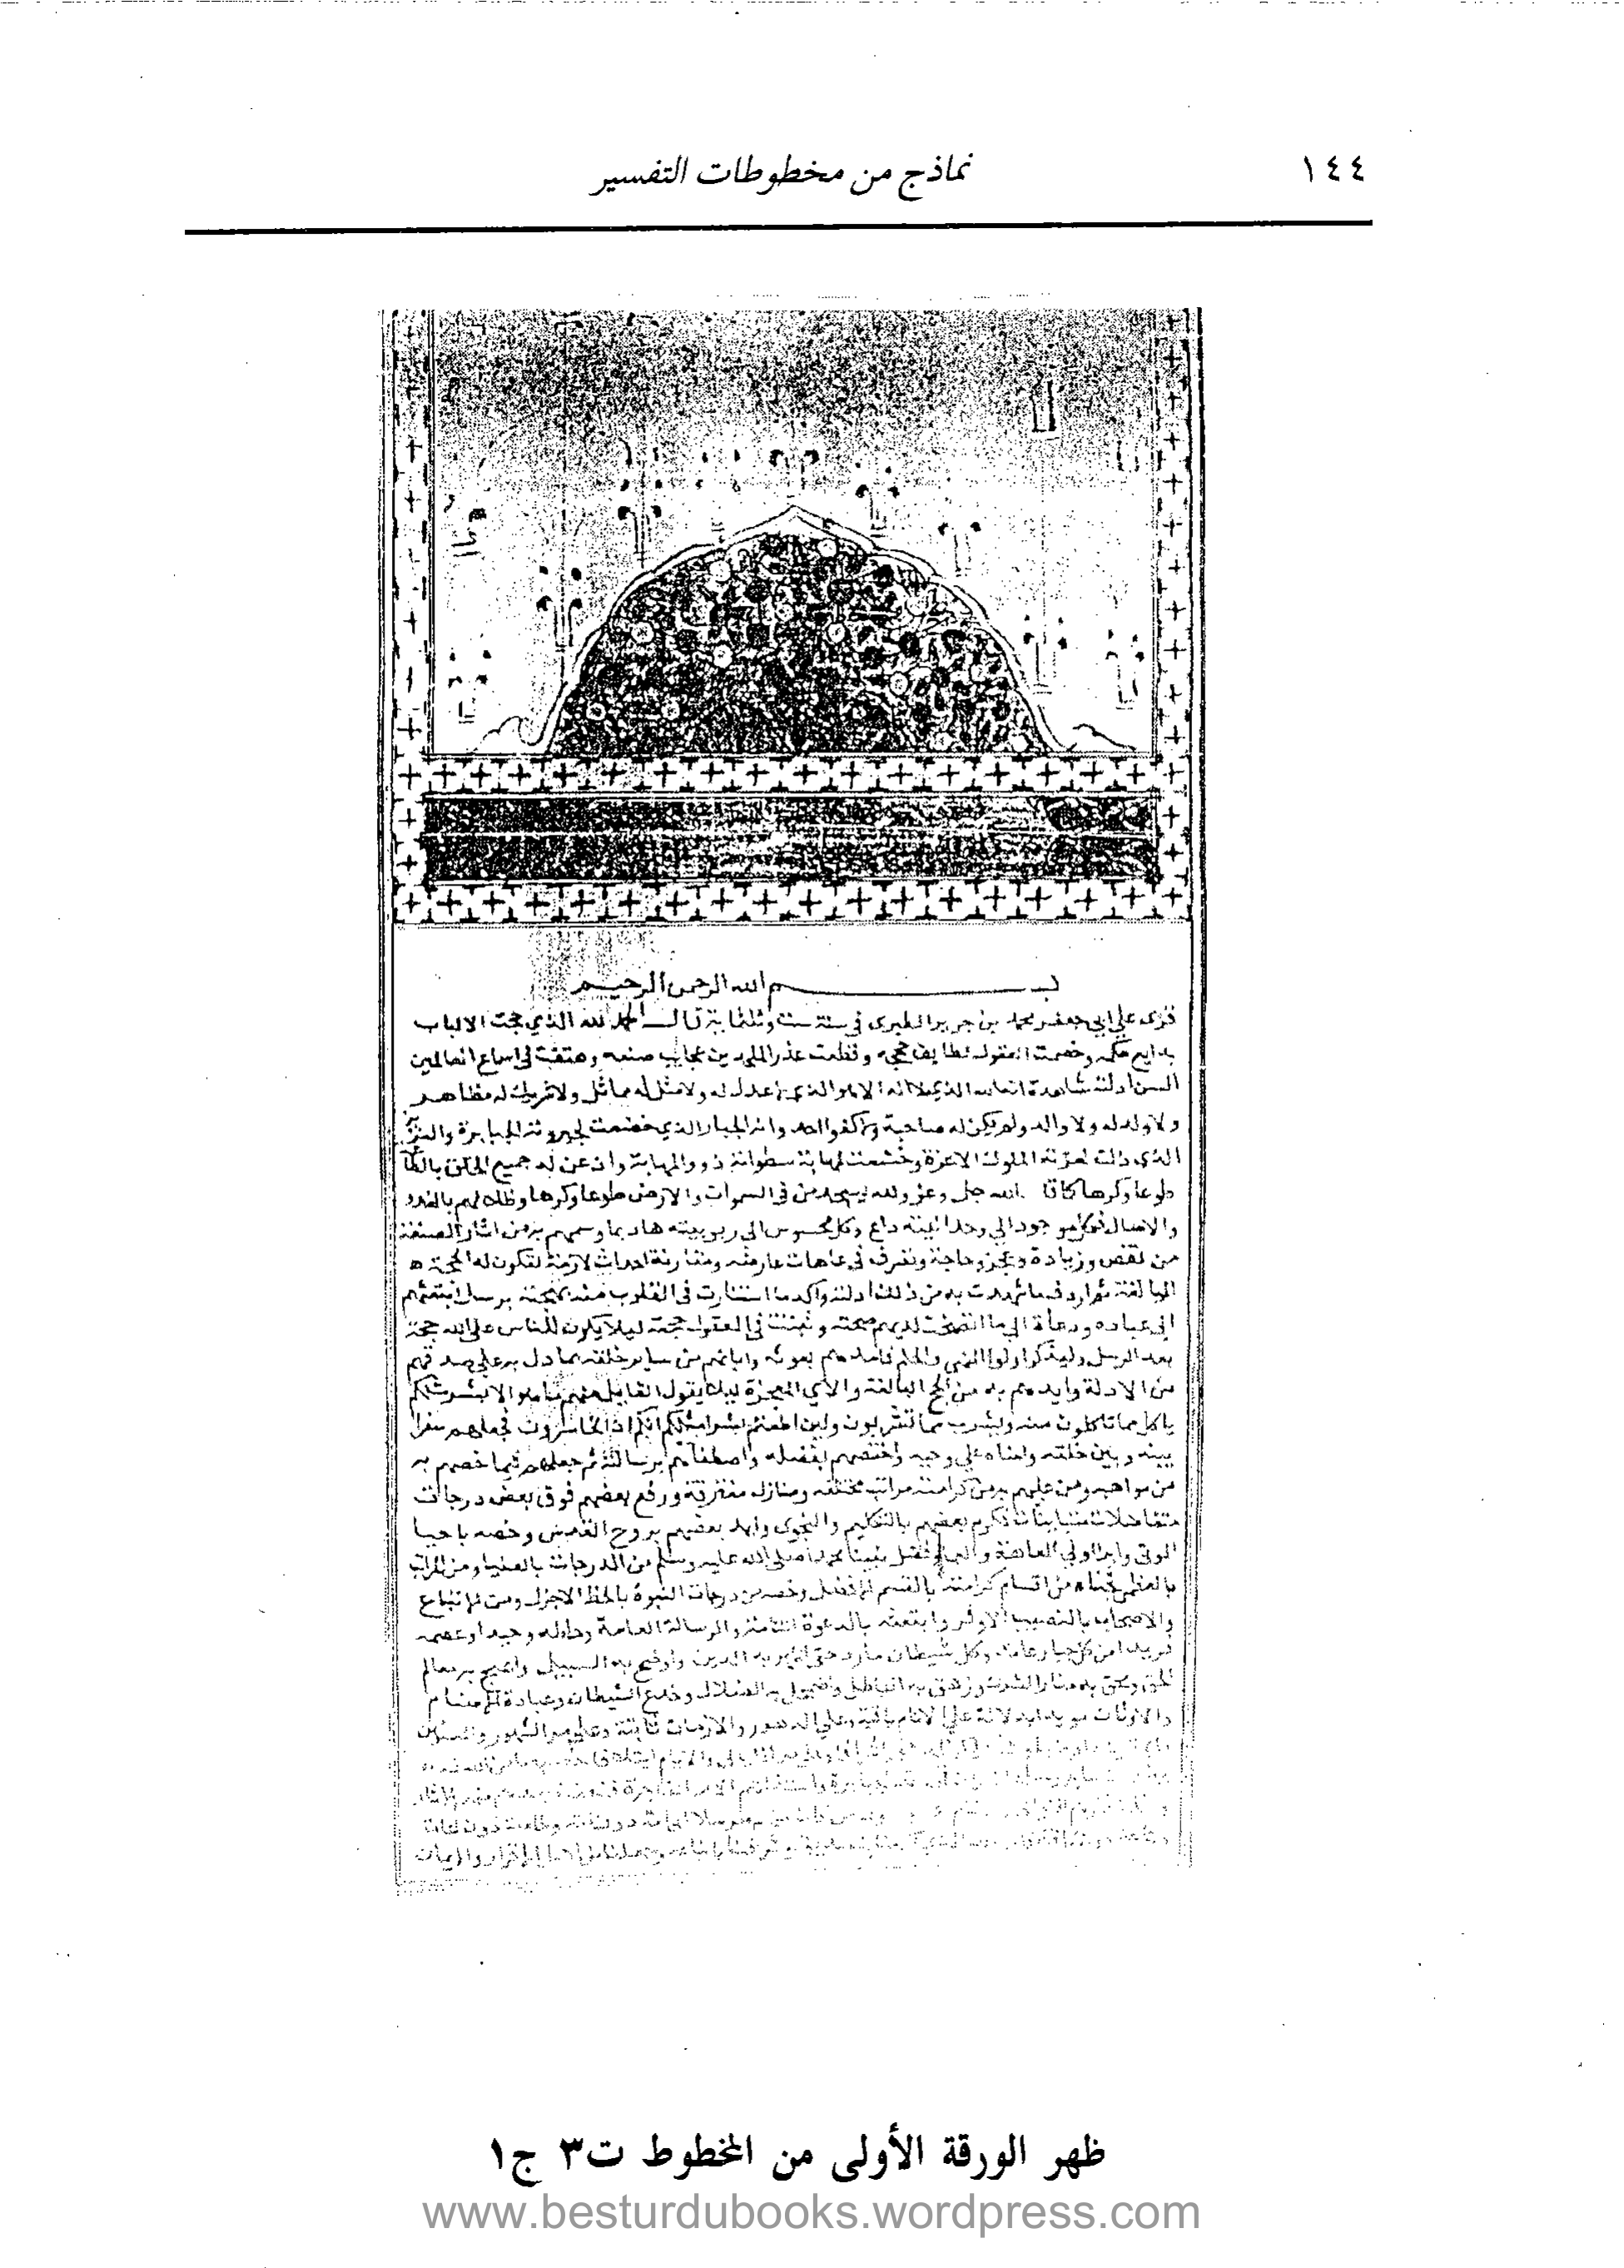 ١٤٤
نماذج من مخطوطات التفسير
بسم الله الرحمن الرحيم
قرى علي ابي جعفر محمد بن جرير الطبرى في سنة ست وثلثماية قال الحمد لله الذي حجت الالباب
بدايع حكمه وخصمت العقول لطايف حججه وقطعت عذر الملحدين عجايب صنعه وهتفت في اسماع العالمين
السن ادلته شاهدة انه الله الذي لا اله الا هو الذي لا عدل له ولا مثل له مماثل ولا شريك له مظاهر
ولا ولد له ولا والد ولم يكن له صاحبة ولا كفوا احد وانه الجبار الذي خضعت لجبروته الجبابرة والعزيز
الذي ذلت لعزته الملوك الاعزة وخشعت لمهابة سطوته ذوو المهابة واذعن له جميع الخلق بالطاعة
طوعا وكرها كما قال الله جل وعز ولله يسجد من في السموات والارض طوعا وكرها وظلالهم بالغدو
والاصال فكل موجود الي وحدانيته داع وكل محسوس الى ربوبيته هاد بما وسمهم به من اثار الصنعة
من نقص وزيادة وعجز وحاجة وتصرف في عاهات عارضه ومقارنة احداث لازمة لتكون له الحجة
البالغة ثم اردف ما شهدت به من ذلك ادلته واكد ما استنارت في القلوب منه بهجته برسل ابتعثهم
الى عباده ودعاة الي ما اتضحت لديهم صحته وثبتت في العقول حجته ليلا يكون للناس على الله حجة
بعد الرسل وليذكر اولوا النهي والحلم فامدهم بعونه وابانهم من ساير خلقه بما دل به علي صدقهم
من الادلة وايدهم به من الحجج البالغة والآي المعجزة ليلا يقول القايل منهم ما هو الا بشر مثلكم
ياكل مما تاكلون منه ويشرب مما تشربون ولين اطعتم بشرا مثلكم انكم اذا لخاسرون فجعلهم سفرا
بينه وبين خلقه وامناه علي وحيه واختصهم بفضله واصطفاهم برسالته ثم جعلهم فيما خصهم به
من مواهبه ومن عليهم به من كرامته مراتب مختلفه ومنازل مفترقة ورفع بعضهم فوق بعض درجات
متفاضلات متباينات فكرم بعضهم بالتكليم والنجوى وايد بعضهم بروح القدس وخصه باحيا
الموتى وابرا اولي العاهة والعمى وفضل نبينا محمدا صلى الله عليه وسلم من الدرجات بالعليا ومن المراتب
بالعظمي فحباه من اقسام كرامته بالقسم الافضل وخصه من درجات النبوة بالحظ الاجزل ومن الاتباع
والاصحاب بالنصيب الاوفر وابتعثه بالدعوة التامة والرسالة العامة وحاطه وحيدا وعصمه
فريدا من كل جبار عاند وكل شيطان مارد حتى اظهر به الدين واوضح به السبيل وانهج به معالم
الحق ومحق به منار الشرك وزهق به الباطل واضمحل به الضلال وخدع الشيطان وعبادة الاصنام
والاوثان مويدا بدلالة علي الايام باقية وعلي الدهور والازمان ثابتة وعلي مر الشهور والسنين
ظهر الورقة الأولى من المخطوط ت٣ ج١
www.besturdubooks.wordpress.com